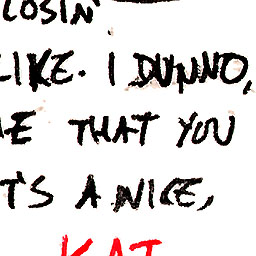 LOSIN'
LIKE. I DUNNO,
THAT YOU
T'S A NICE,
KAT